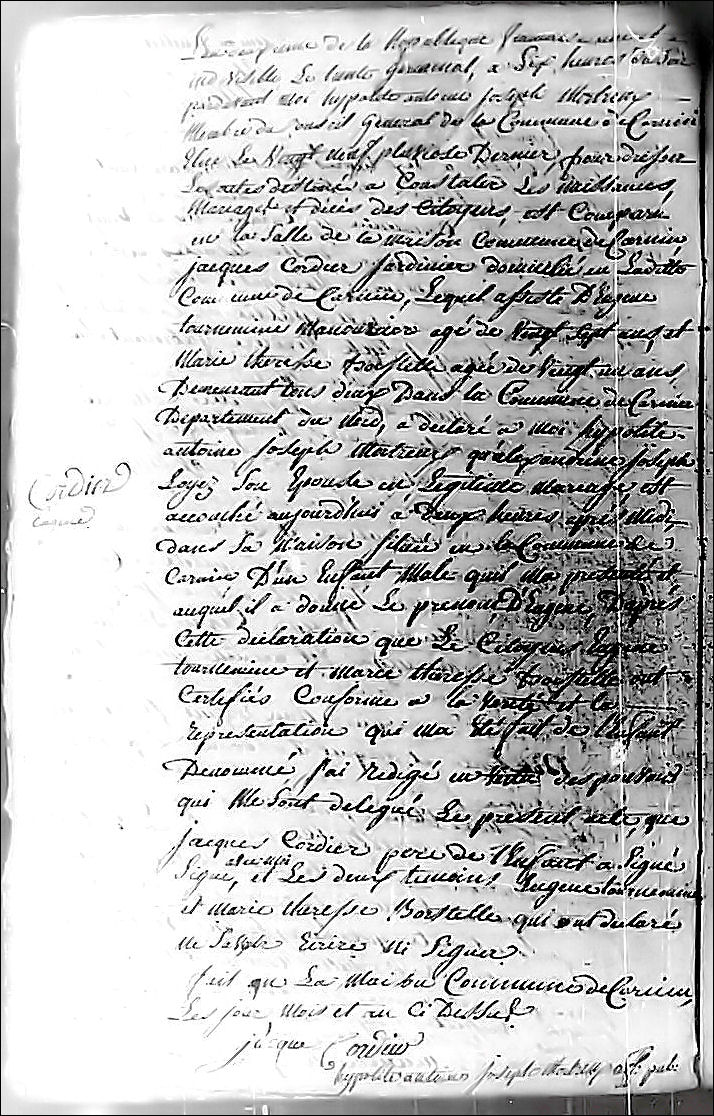 de la Republique francaise une et
indivisible Le trente germinal, a Six heures du Soir
pardevant moi hypolite antoine Joseph Mortreux
Membre du Conseil general de la Commune de Carnin
Elue Le Vingt neuf pluviose Dernier, pour dresser
Les actes destinés a Constater Les Naissances,
Mariages et décès des Citoyens, est Comparu
en la Salle de la maison Commune de Carnin
jacques Cordier Jardinier domicilié en Laditte
Commune de Carnin, Lequel assisté D'Eugene
tournemine Manouvrier agé de Vingt Sept ans, et
Marie therese agée de Vingt un ans
Demeurant tous deux Dans la Commune de Carnin
Departement du Nord, a declaré a moi hypolite
antoine Joseph Mortreux qu'alexandrine Joseph
Loyez Son Epouse en Legitime mariage, est
accouché aujourd'huis a Deux heures apres Midy
dans Sa Maison Située en la Commune de
Carnin D'un Enfant Male quil ma presenté et
auquel il a donné Le prenom D'Eugene, D'après
Cette declaration que Le Citoyens Eugene
tournemine et marie therese ont
Certifiés Conforme a la Verité et la
representation qui ma Eté fait de l'Enfant
Denommé J'ai redigé en Vertu des pouvoirs
qui Me Sont delegué Le present acte, que
Jacques Cordier pere de l'Enfant a Signé
avec moi
Signé, et Les deux temoins Eugene tournemine
et marie therese Borstelle qui ont declaré
ne Savoir Ecrire Ni Signer.
Fait en La Maison Commune de Carnin,
Les jour Mois et an Ci Dessus
Cordier
jacque Cordier
hypolite antoine joseph Mortreux off. pub: